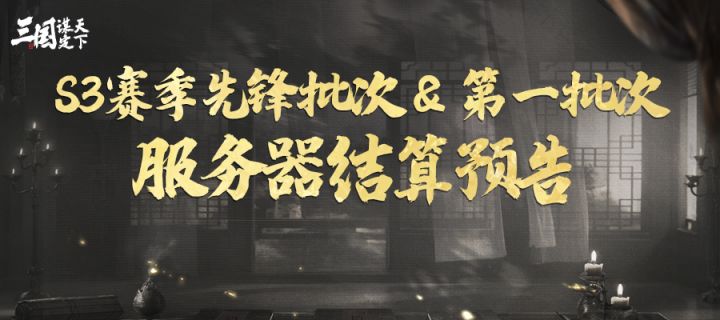 三国谋定天下
S3赛季先锋批次 & 第一批次
服务器结算预告